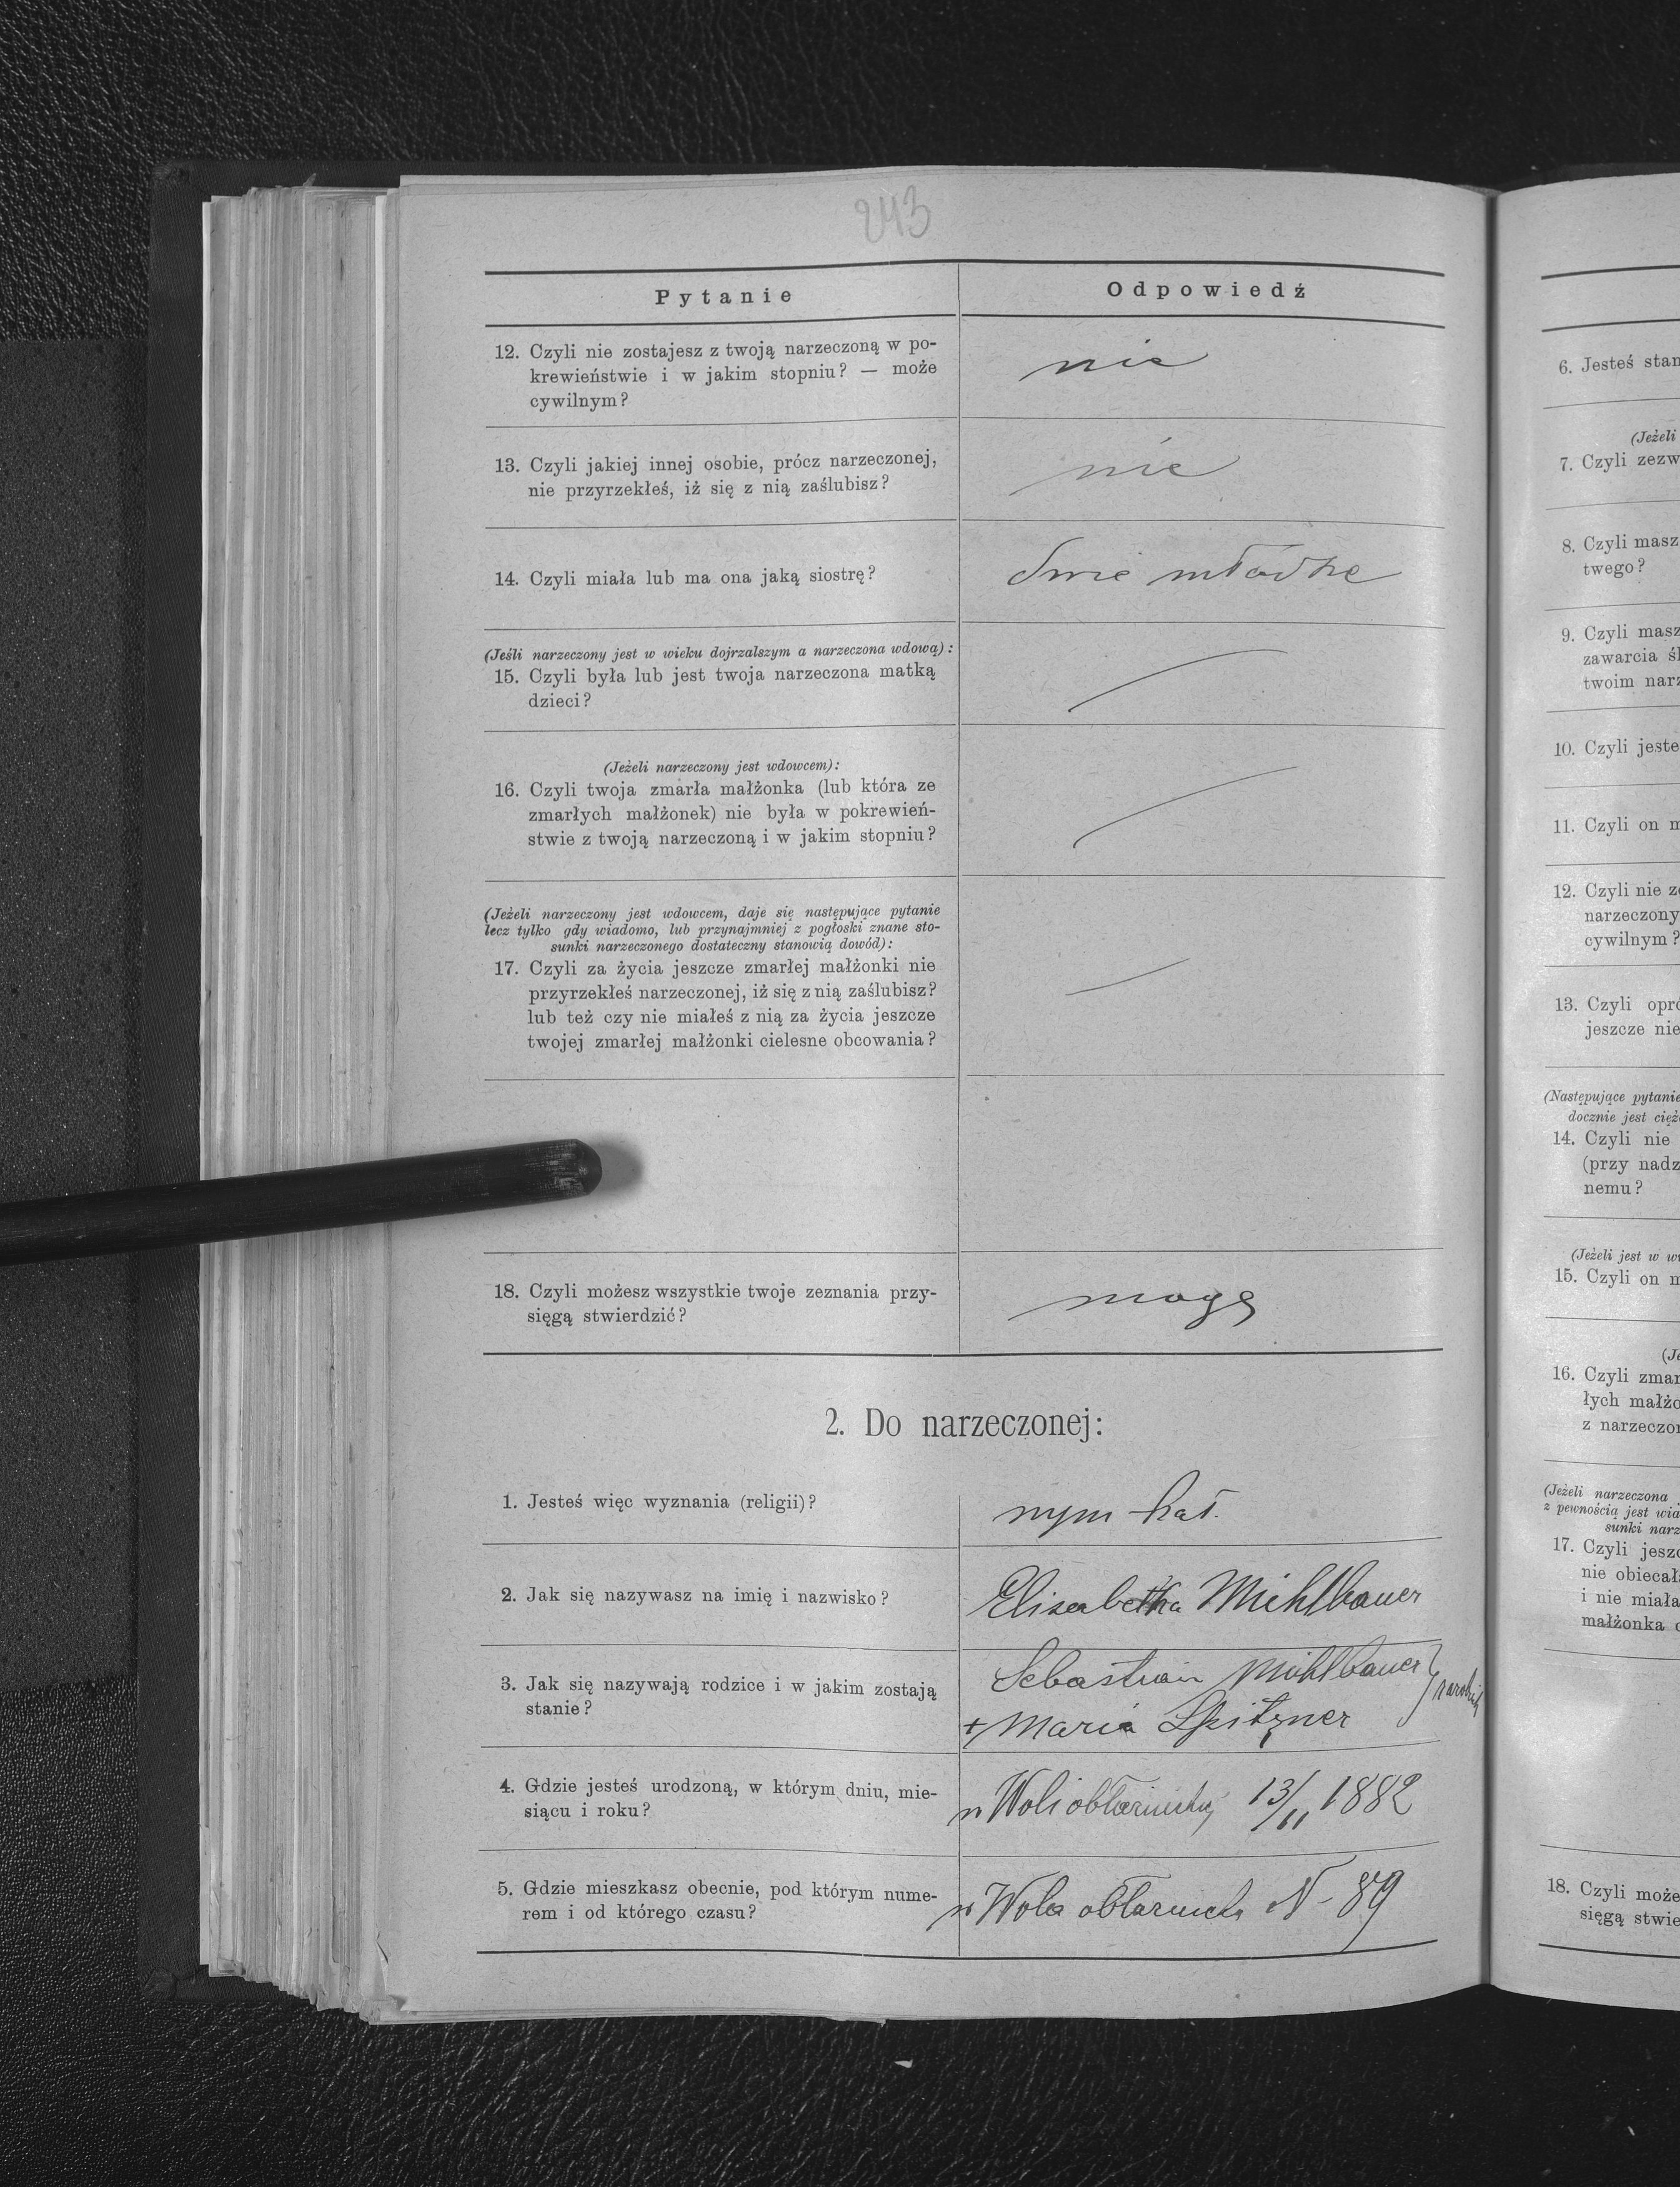 243
Pytanie
Odpowiedź
12. Czyli nie zostajesz z twoją narzeczoną w po-
krewieństwie i w jakim stopniu? — może
cywilnym?
nie
13. Czyli jakiej innej osobie, prócz narzeczonej,
nie przyrzekłeś, iż się z nią zaślubisz?
nie
14. Czyli miała lub ma ona jaką siostrę?
dwie młodsze
(Jeśli narzeczony jest w wieku dojrzalszym a narzeczona wdową):
15. Czyli była lub jest twoja narzeczona matką
dzieci?
(Jeżeli narzeczony jest wdowcem):
16. Czyli twoja zmarła małżonka (lub która ze
zmarłych małżonek) nie była w pokrewień-
stwie z twoją narzeczoną i w jakim stopniu?
(Jeżeli narzeczony jest wdowcem, daje się następujące pytanie
lecz tylko gdy wiadomo, lub przynajmniej z pogłoski znane sto-
sunki narzeczonego dostateczny stanowią dowód):
17. Czyli za życia jeszcze zmarłej małżonki nie
przyrzekłeś narzeczonej, iż się z nią zaślubisz?
lub też czy nie miałeś z nią za życia jeszcze
twojej zmarłej małżonki cielesne obcowania?
18. Czyli możesz wszystkie twoje zeznania przy-
sięgą stwierdzić?
mogę
2. Do narzeczonej:
1. Jesteś więc wyznania (religii)?
rzym kat.
2. Jak się nazywasz na imię i nazwisko?
Elisabetha Mühlbauer
3. Jak się nazywają rodzice i w jakim zostają
stanie?
Sebastian Mühlbauer
+ Maria Spitzner
4. Gdzie jesteś urodzoną, w którym dniu, mie-
siącu i roku?
w Woli 13/11 1882
5. Gdzie mieszkasz obecnie, pod którym nume-
rem i od którego czasu?
w Wola N 89
6. Jesteś stan
(Jeżeli
7. Czyli zezw
8. Czyli masz
twego?
9. Czyli masz
zawarcia śl
twoim narz
10. Czyli jeste
11. Czyli on m
12. Czyli nie zo
narzeczony
cywilnym?
13. Czyli opró
jeszcze nie
(Następujące pytanie
docznie jest cięż
14. Czyli nie
(przy nadz
nemu?
(Jeżeli jest w wi
15. Czyli on m
(Je
16. Czyli zmar
łych małżo
z narzeczon
(Jeżeli narzeczona
z pewnością jest wia
sunki narz
17. Czyli jeszc
nie obiecał
i nie miała
małżonka c
18. Czyli może
sięgą stwie